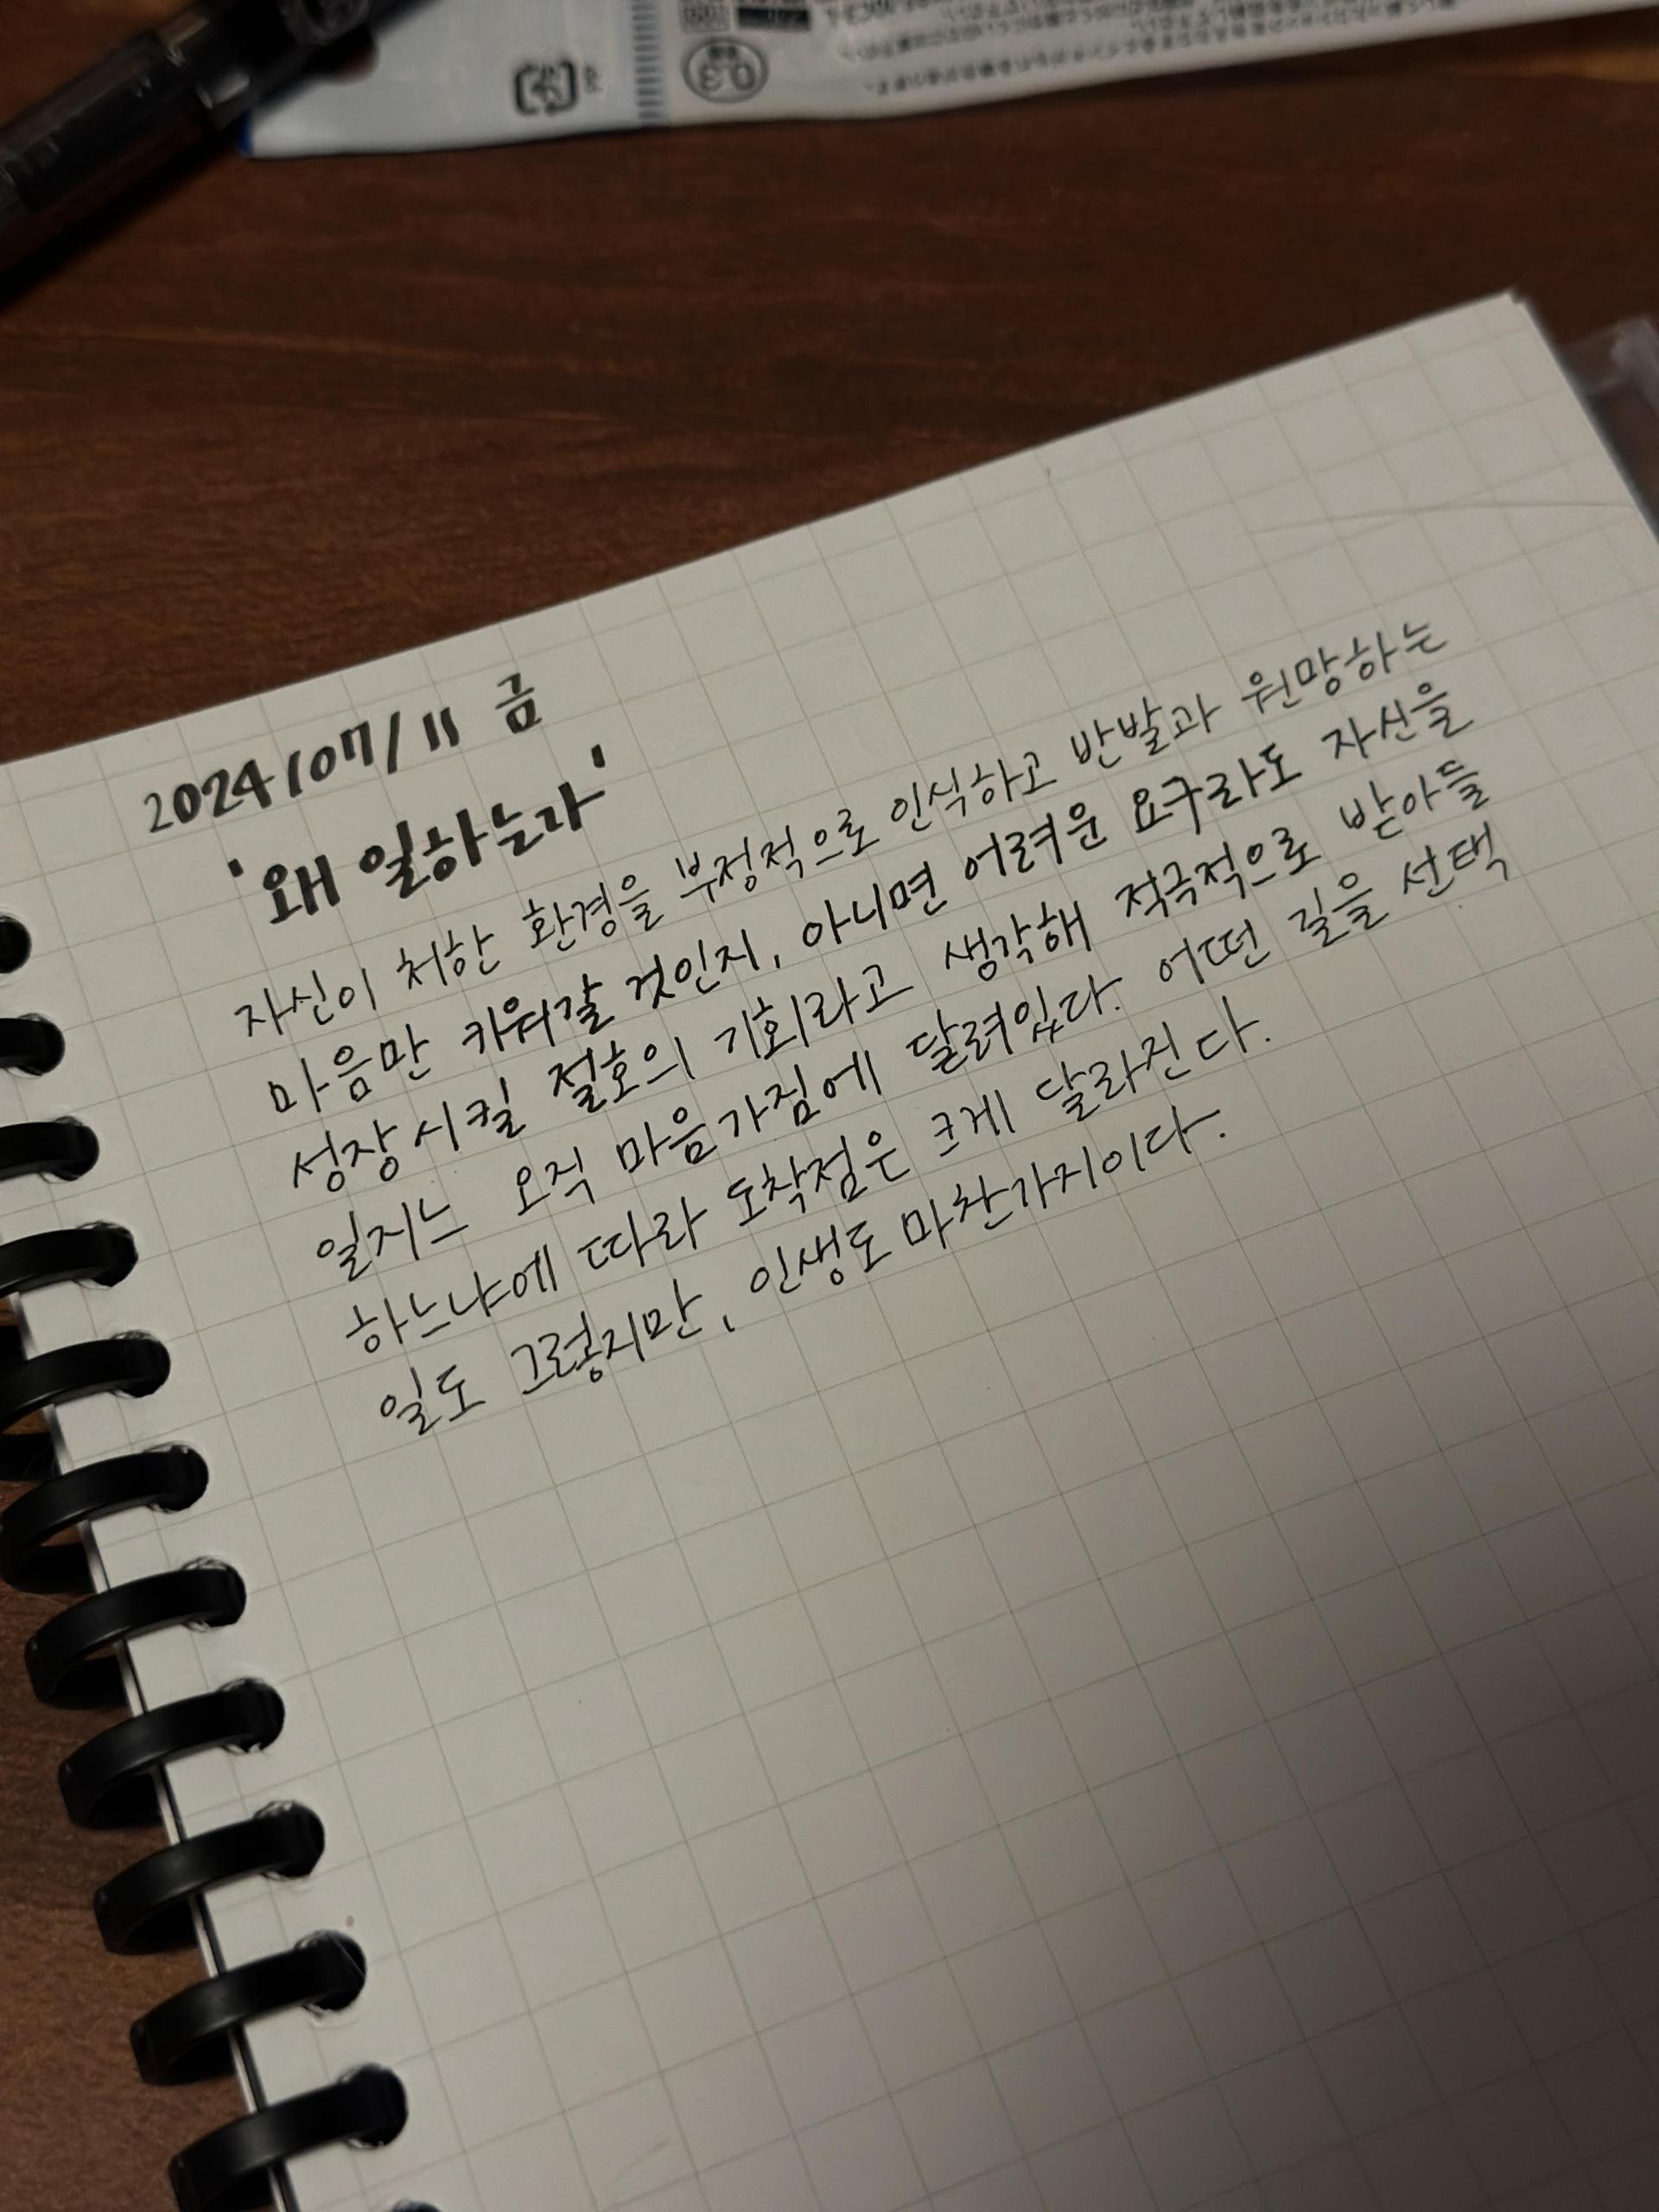 0.3
2024/07/11 금
'왜 일하는가'
자신이 처한 환경을 부정적으로 인식하고 반발과 원망하는
마음만 키워갈 것인지, 아니면 어려운 요구라도 자신을
성장시킬 절호의 기회라고 생각해 적극적으로 받아들
일지는 오직 마음가짐에 달려있다. 어떤 길을 선택
하느냐에 따라 도착점은 크게 달라진다.
일도 그렇지만, 인생도 마찬가지이다.